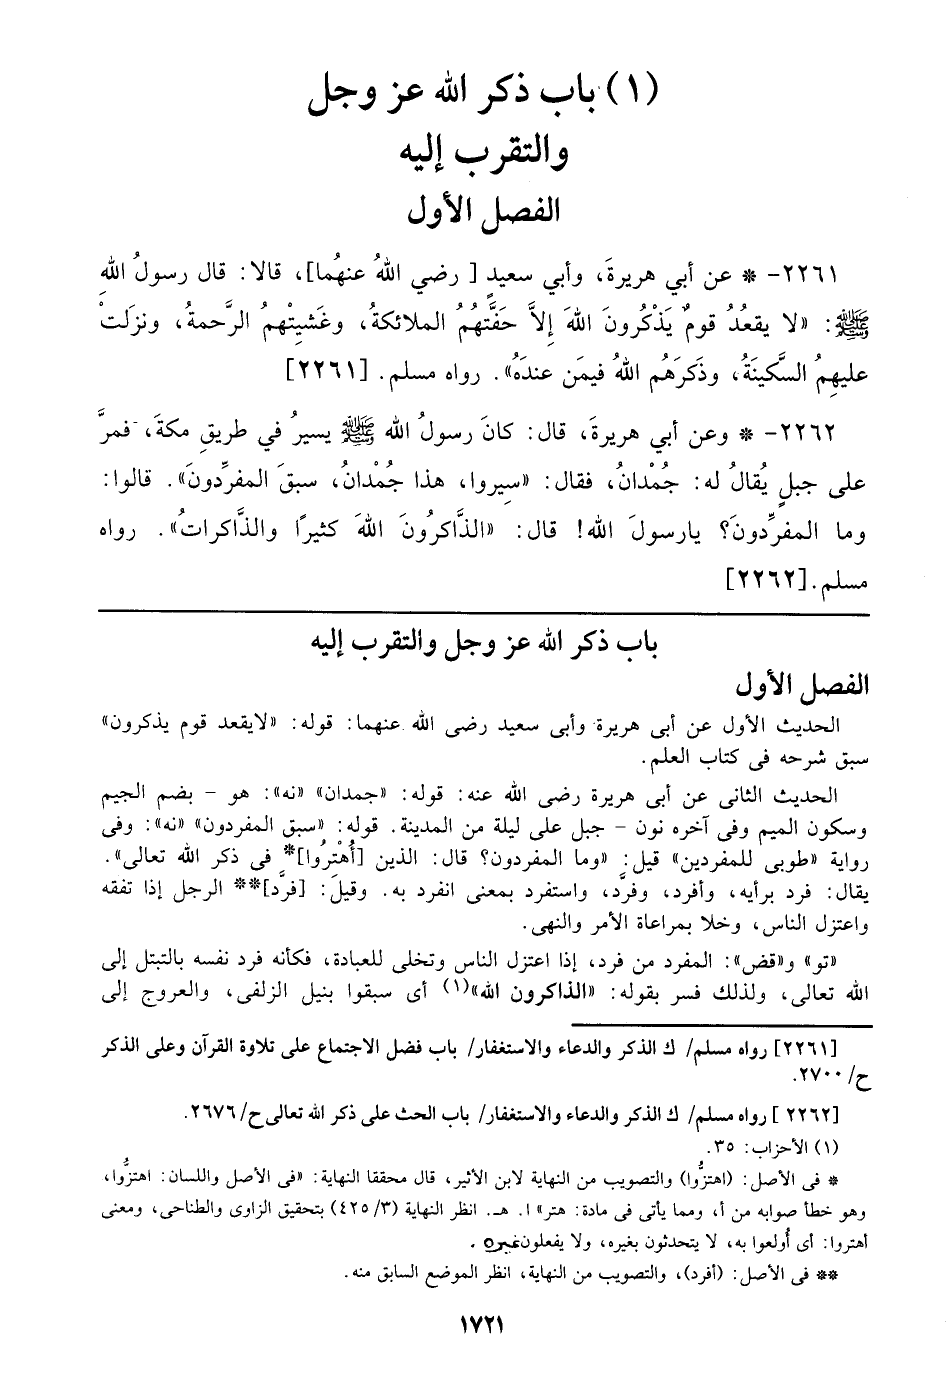 (١) باب ذكر الله عز وجل
والتقرب إليه
الفصل الأول
٢٢٦١- * عن أبي هريرةَ، وأبي سعيدٍ [ رضي اللهُ عنهُما]، قالا: قال رسولُ اللهِ
ﷺ: «لا يقعُدُ قومٌ يَذْكُرونَ اللهَ إلاَّ حَفَّتْهُمُ الملائكةُ، وغَشيتْهمُ الرَّحمةُ، ونزلَتْ
عليهِمُ السَّكينَةُ، وذكَرَهُم اللهُ فيمَن عندَه». رواه مسلم. [٢٢٦١]
٢٢٦٢- * وعن أبي هريرةَ، قال: كانَ رسولُ الله ﷺ يسيرُ في طريقِ مكةَ، فمرَّ
على جبلٍ يُقالُ له: جُمْدانُ، فقال: «سِيروا، هذا جُمْدانُ، سبقَ المفردِّونَ». قالوا:
وما المفردِّونَ؟ يارسولَ الله! قال: «الذَّاكرُونَ اللهَ كثيرًا والذَّاكراتُ». رواه
مسلم.[٢٢٦٢]
باب ذكر الله عز وجل والتقرب إليه
الفصل الأول
الحديث الأول عن أبى هريرة وأبى سعيد رضى الله عنهما: قوله: «لايقعد قوم يذكرون»
سبق شرحه فى كتاب العلم.
الحديث الثانى عن أبى هريرة رضى الله عنه: قوله: «جمدان» «نه»: هو – بضم الجيم
وسكون الميم وفى آخره نون – جبل على ليلة من المدينة. قوله: «سبق المفردون» «نه»: وفى
رواية «طوبى للمفردين» قيل: «وما المفردون؟ قال: الذين [أُهْتِرُوا]* فى ذكر الله تعالى».
يقال: فرد برأيه، وأفرد، وفرَّد، واستفرد بمعنى انفرد به. وقيل: [فرَّد]** الرجل إذا تفقه
واعتزل الناس، وخلا بمراعاة الأمر والنهى.
«تو» و«قض»: المفرد من فرد، إذا اعتزل الناس وتخلى للعبادة، فكأنه فرد نفسه بالتبتل إلى
الله تعالى، ولذلك فسر بقوله: «الذاكرون الله»(١) أى سبقوا بنيل الزلفى، والعروج إلى
[٢٢٦١] رواه مسلم/ ك الذكر والدعاء والاستغفار/ باب فضل الاجتماع على تلاوة القرآن وعلى الذكر
ح/ ٢٧٠٠.
[٢٢٦٢ ] رواه مسلم/ ك الذكر والدعاء والاستغفار/ باب الحث على ذكر الله تعالى ح/ ٢٦٧٦.
(١) الأحزاب: ٣٥.
* فى الأصل: (اهتزُّوا) والتصويب من النهاية لابن الأثير، قال محققا النهاية: «فى الأصل واللسان: اهتزُّوا،
وهو خطأ صوابه من أ، ومما يأتى فى مادة: هتر» ا. هـ. انظر النهاية (٣/ ٤٢٥) بتحقيق الزاوى والطناحى، ومعنى
أهتروا: أى أُولعوا به، لا يتحدثون بغيره، ولا يفعلون غيره .
** فى الأصل: (أفرد)، والتصويب من النهاية، انظر الموضع السابق منه.
١٧٢١